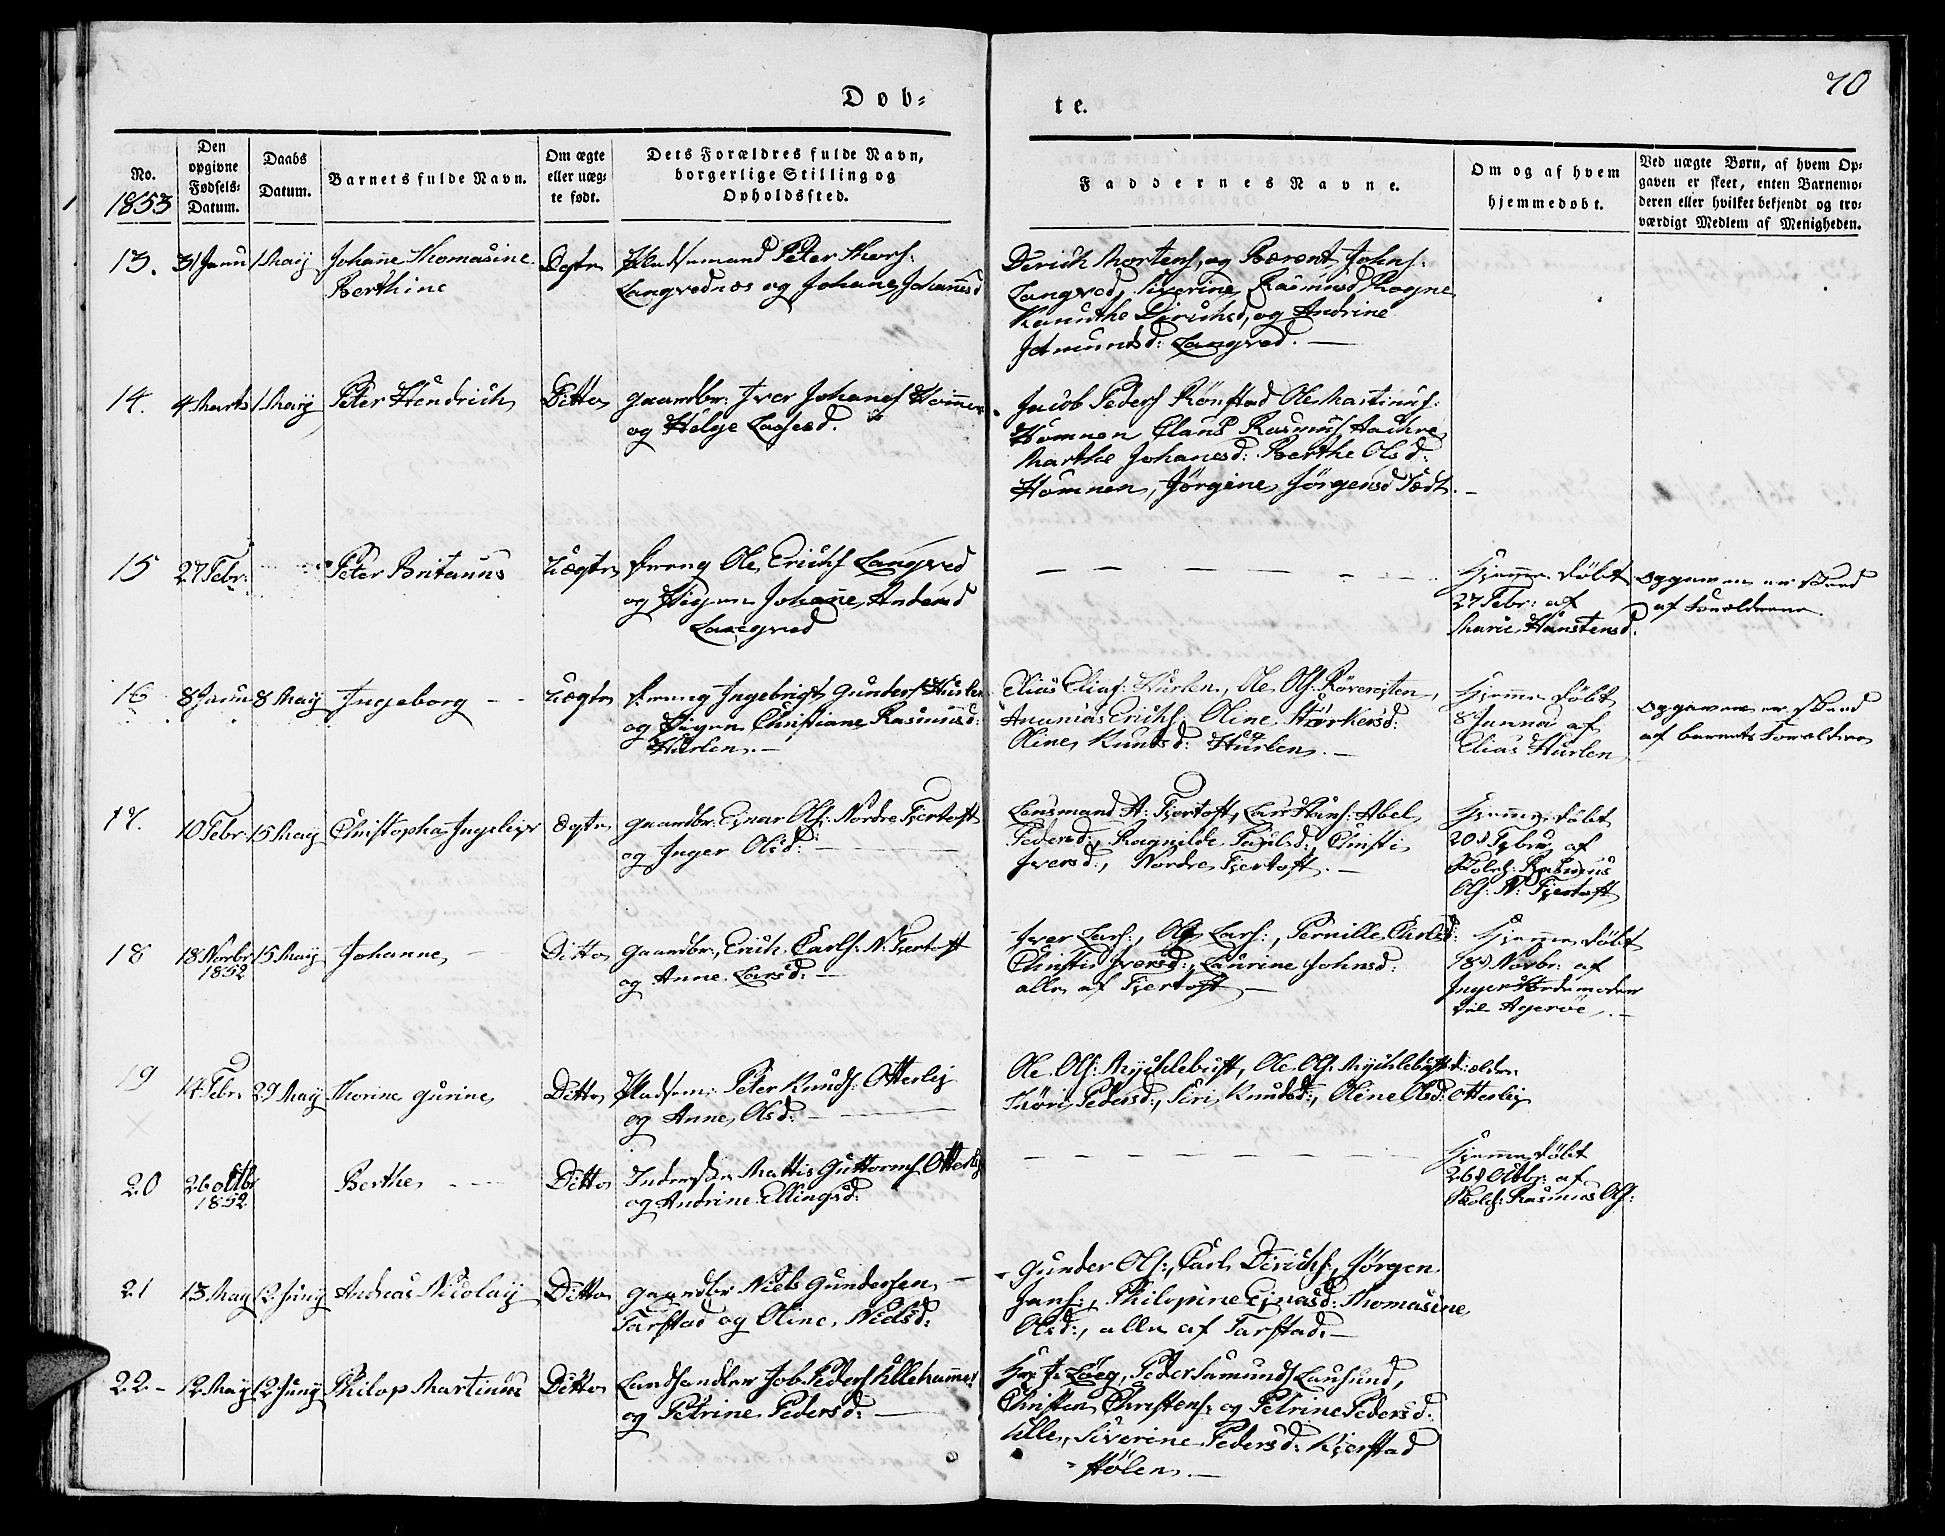 70
Døb=
te.
No.
1853
Den
opgivne
Fødsels-
Datum.
Daabs
Datum.
Barnets fulde Navn.
Om ægte
eller uæg-
te født.
Dets Forældres fulde Navn,
borgerlige Stilling og
Opholdssted.
Faddernes Navne.
Om og af hvem
hjemmedøbt.
Ved uægte Børn, af hvem Op-
gaven er skeet, enten Barnemo-
deren eller hvilket bekjendt og tro-
værdigt Medlem af Menigheden.
13. 31 Janu 1 May Johane Thomasine
Berthine
Pladsemand Peter Thors:
Langvednæs og Johane Johanesd
Dirich Mortens, og Berent Johns:
Langved, Siverine Rasmusd Rogne
Kanuthe Dirichsd, og Andrine
Langved.
14. 4 Marts 1 May Peter Hendrich Ditto
Gaardbr: Iver Johanes Homnen
og Helge Lassesd.
Jacob Peders Rønstad Ole Martinus:
Homnen Claus Rasmus
Marthe Johanesd: Berthe Olsd:
Homnen, Jørgine Jørgensd
15 27 Febr: Peter Uægte
Dreng Ole Erichs Langved
og Pigen Johanne Andersd
Langved
Hjemme døbt
27 Febr: af
Marie Hanstensd.
Opgaven er skeed
af Forældrene.
16 8 Janu 8 May Ingeborg Uægte
Dreng Ingebrigt Gunders Hurlen
og Pigen Christiane Rasmusd:
Hurlen.
Elias Elias: Hurlen, Ole Ols:
Ananias Erichs: Oline Størkersd:
Oline Knudsd: Hurlen.
Hjemme døbt
8 Janua af
Elias Hurlen
Opgaven er skeed
af barnets Forældre
17. 10 Febr 15 May Christopha Ingeleiv Egte
Gaardbr: Ejnar Ols: Nordre Fjertoft
og Inger Olsd:
Lensmand H: Fjertoft, Lars Hans: Abel
Pedersd:, Ragnilde Paulsd:, Christi
Iversd:, Nordre Fjertoft.
Hjemme døbt
20d Febru af
Skolel: Rasmus
Ols: N: Fjertoft
18 18 Novbr 15 May Johanne Ditto
1852
Gaardbr: Erich Carls: N: Fjertoft
og Anne Larsd:
Iver Lars:, Ole Lars:, Pernille Carlsd:
Christi Iversd:, Laurine Johnsd:
alle af Fjertoft
Hjemme døbt
18d Novbr: af
Inger Jordemoder
til Agerøe.
19 14 Febr 29 May Thorine Gurine Ditto
Pladsm: Peter Knuds: Otterlej
og Anne Olsd:
Ole Ols: Mychlebust, Ole Ols: Mychlebust d: ældre
Pedersd:, Siri Knudsd:, Oline Olsd: Otterlej
20 26 Octbr Berthe Ditto
1852
Inderster Mattis Guttorms: Otterlej
og Andrine Ellingsd:
Hjemme døbt
26d Octbr: af
Skolel: Rasmus Ols:
21 13 May 12 Juny Andreas Nicolaij Ditto
Gaardbr Niels Gundersen
Farstad og Oline Nielsd:
Gunder Ols:, Carl Dirichs:, Jørgen
Jans:, Philopine Ejnasd: Thomasine
Olsd:, alle af Farstad.
22 12 May 12 Juny Philop Martinus Ditto
Landhandler Job Peders Ullehammer
og Petrine Pedersd:
Løeg, Peder Samunds Lausund,
Christen Christens: og Petrine Pedersd:
Ulle, Siverine Pedersd: Kjerstad
Hølen.